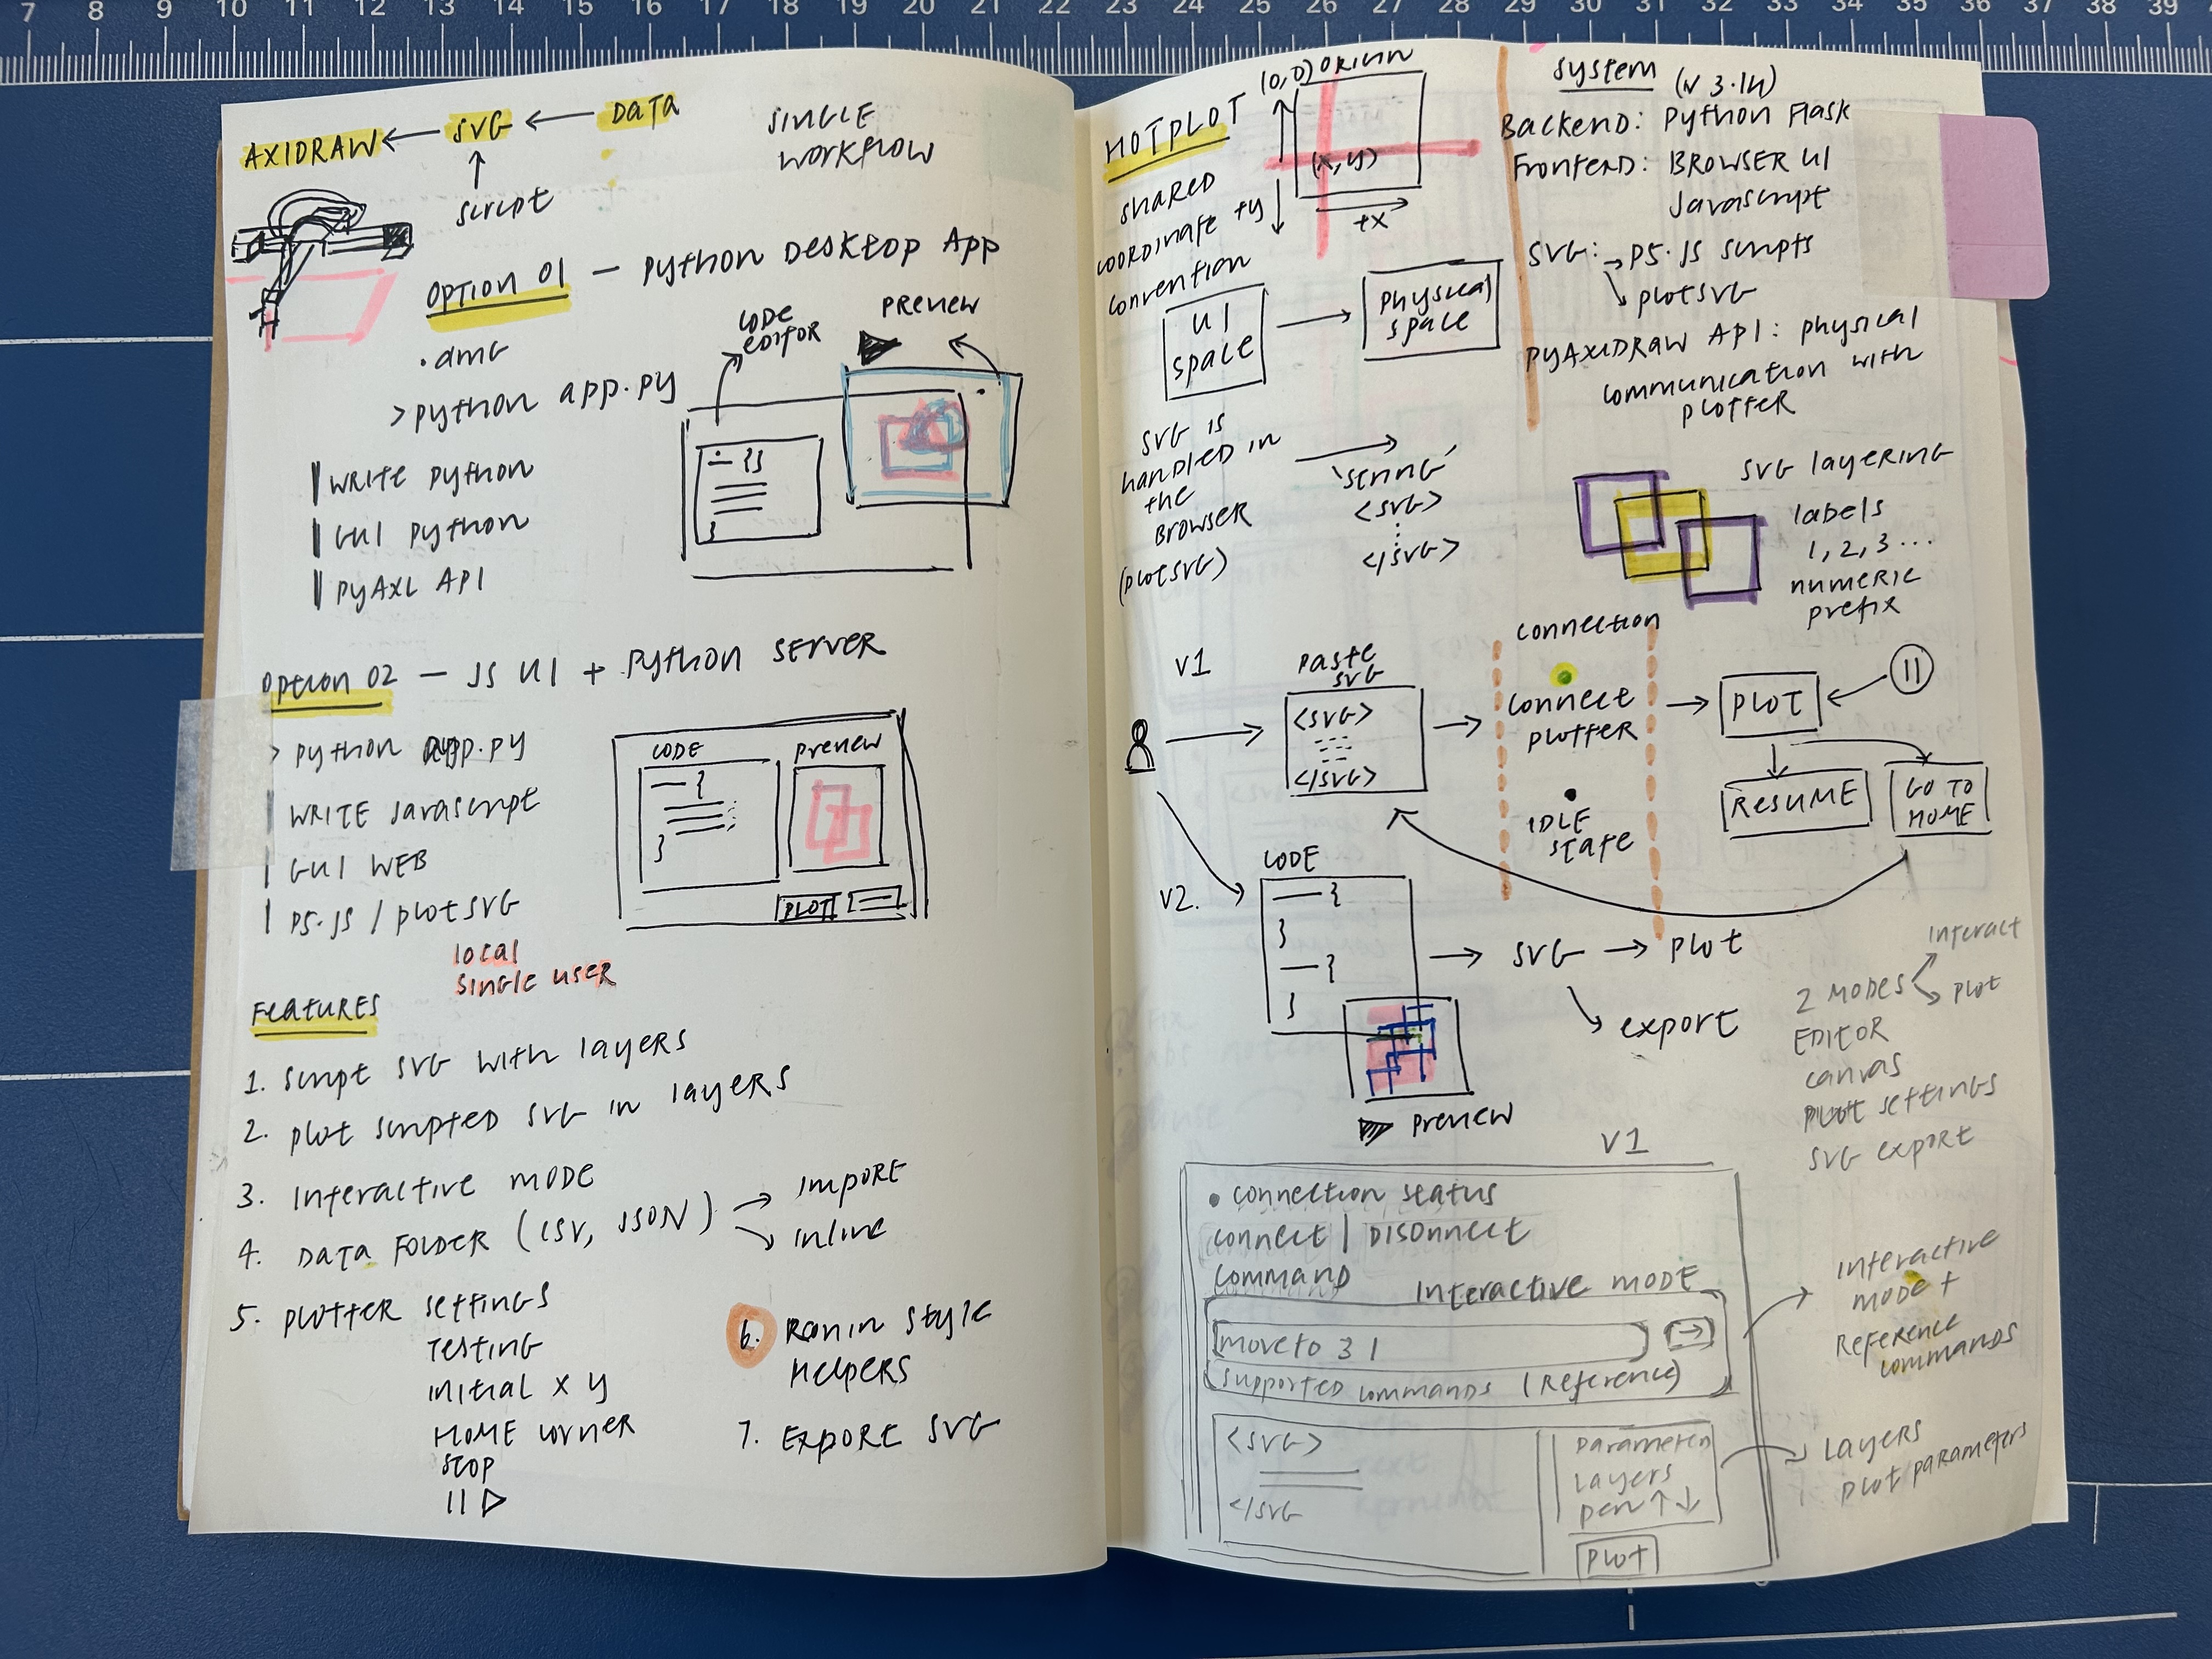 7 8 9 10 11 12 13 14 15 16 17 18 19 20 21 22 23 24 25 26 27 28 29 30 31 32 33 34 35 36 37 38 39
AXIDRAW ← SVG ← DATA
script
SINGLE
WORKFLOW
OPTION 01 — PYTHON DESKTOP APP
.dmg
> python app.py
CODE
EDITOR
PREVIEW
WRITE PYTHON
GUI PYTHON
PYAXI API
OPTION 02 — JS UI + PYTHON SERVER
> python app.py
WRITE Javascript
GUI WEB
P5.JS / plotSVG
local
single user
CODE
Preview
PLOT
FEATURES
1. Script SVG with layers
2. plot scripted SVG in layers
3. Interactive MODE
4. DATA FOLDER (CSV, JSON)
IMPORT
Inline
5. PLOTTER settings
Testing
initial x y
HOME corner
stop
6. Ronin style
Helpers
7. EXPORT SVG
HOTPLOT
(0,0) ORIGIN
(x,y)
+y
+x
shared
coordinate
convention
UI
space
→
physical
space
SVG is
handled in
the
BROWSER
(plotSVG)
→
'string'
<SVG>
</SVG>
System (v 3.14)
Backend: Python Flask
Frontend: BROWSER UI
Javascript
SVG: → P5.JS scripts
plotSVG
PYAXIDRAW API: physical
communication with
plotter
SVG layering
labels
1, 2, 3 ...
numeric
prefix
V1
Paste
SVG
<SVG>
</SVG>
connection
connect
plotter
IDLE
state
PLOT
RESUME
GO TO
HOME
V2.
CODE
→ SVG → Plot
export
Preview
2 MODES
Interact
Plot
EDITOR
canvas
Plot settings
SVG export
V1
• connection status
connect | Disconnect
command
Interactive MODE
moveto 3 1
supported commands (Reference)
<SVG>
</SVG
Parameters
Layers
pen ↑ ↓
PLOT
Interactive
mode +
Reference
commands
Layers
plot parameters